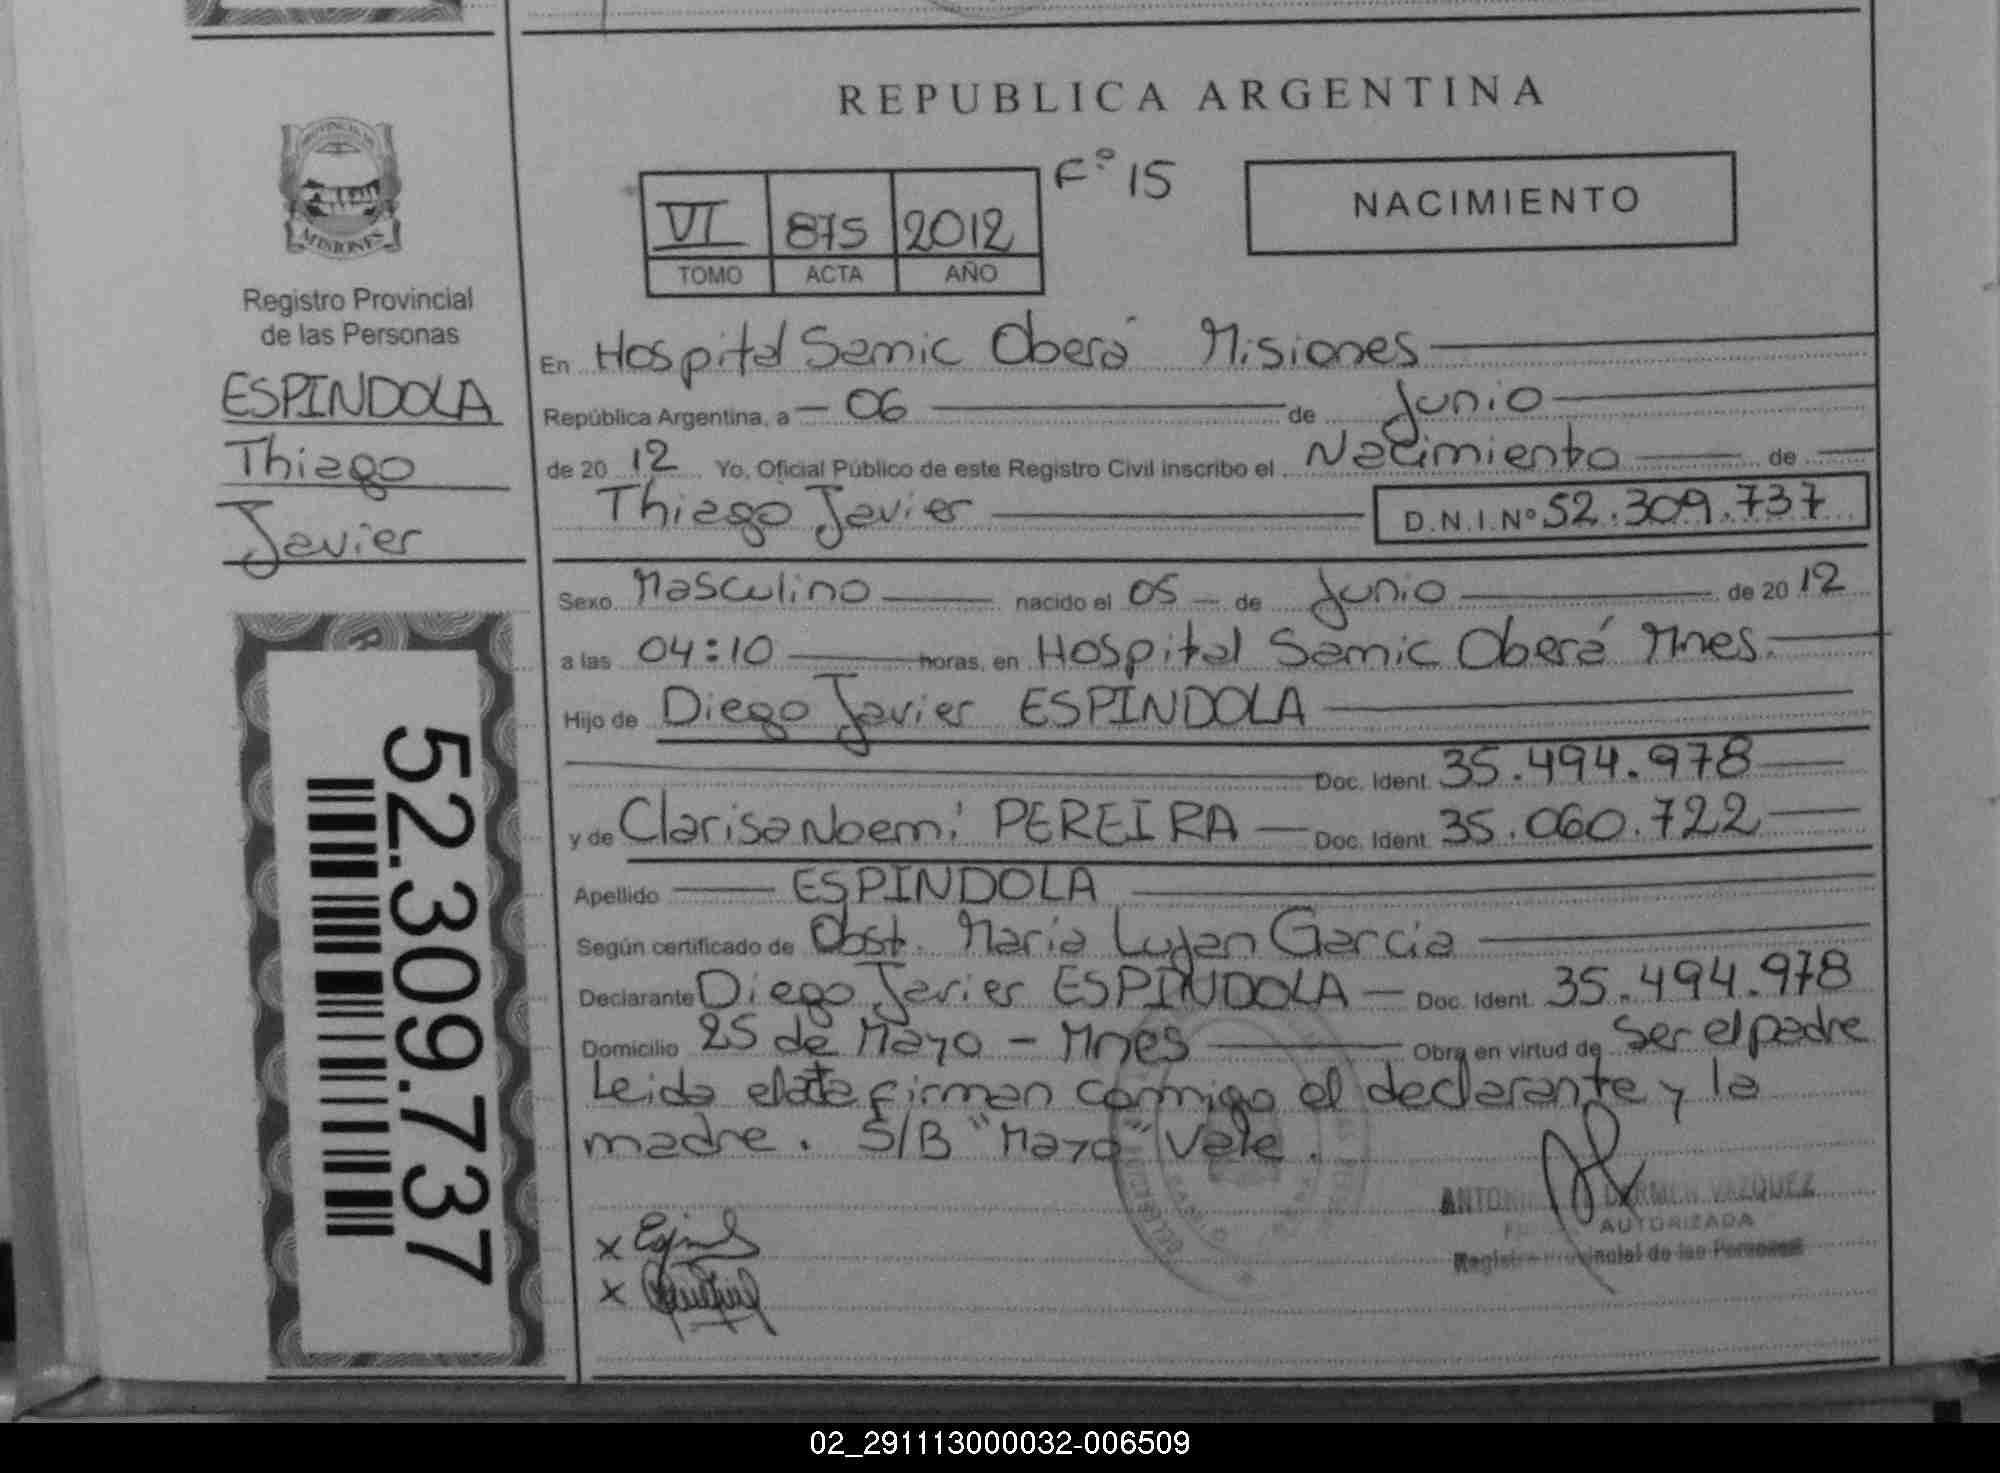 REPUBLICA ARGENTINA
F° 15
NACIMIENTO
VI 875 2012
TOMO ACTA AÑO
PROVINCIA DE
MISIONES
Registro Provincial
de las Personas
ESPINDOLA
Thiago
Javier
52.309.737
En Hospital Samic Oberá Misiones
República Argentina, a 06 de Junio
de 20 12 Yo, Oficial Público de este Registro Civil inscribo el Nacimiento de
Thiago Javier D.N.I.Nº 52.309.737
Sexo Masculino nacido el 05 de Junio de 20 12
a las 04:10 horas, en Hospital Samic Oberá Mnes.
Hijo de Diego Javier ESPINDOLA
Doc. Ident. 35.494.978
y de Clarisa Noemí PEREIRA Doc. Ident. 35.060.722
Apellido ESPINDOLA
Según certificado de Obst. Maria Lujan Garcia
Declarante Diego Javier ESPINDOLA Doc. Ident. 35.494.978
Domicilio 25 de Mayo - Mnes Obra en virtud de Ser el padre
Leida el acta firman conmigo el declarante y la
madre. S/B "Mayo" Vale.
X
X
VAZQUEZ
AUTORIZADA
Registro Provincial de las Personas
02_291113000032-006509